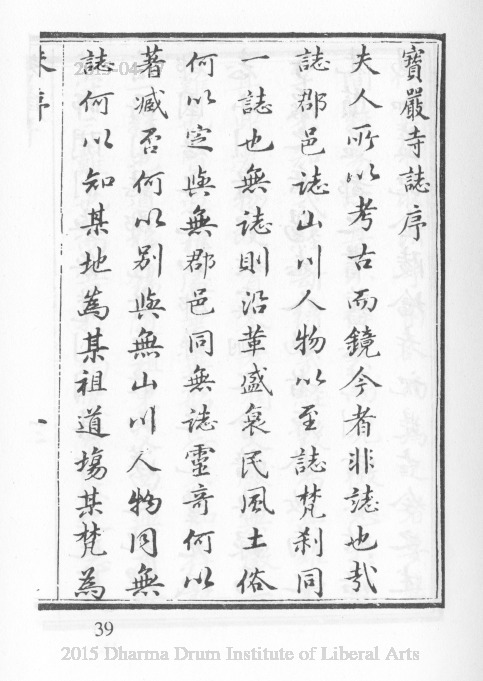 寶嚴寺誌序
夫人所以考古而鏡今者非誌也哉
誌郡邑誌山川人物以至誌梵刹同
一誌也無誌則沿革盛衰民風土俗
何以定與無郡邑同無誌靈奇何以
著臧否何以別與無山川人物同無
誌何以知某地為某祖道塲某梵為
序
39
2015 Dharma Drum Institute of Liberal Arts